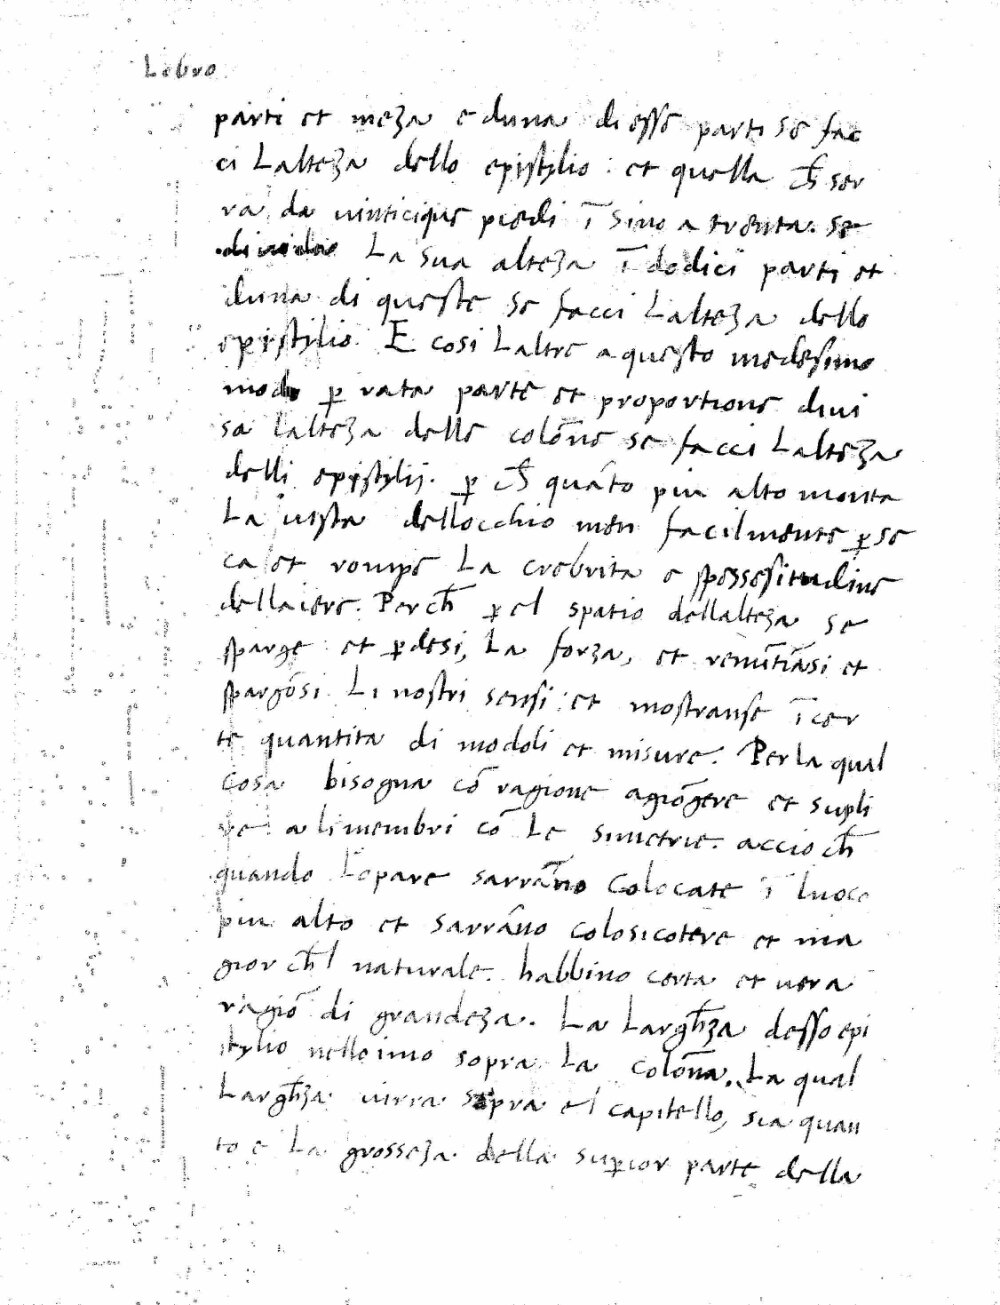 Lebro
parti et meza e duna di esse parti se fac
ci Lalteza dello epistylio : et quella ch̄ ser
ra da vinticique piedi ī sino a trenta. se
divida La sua alteza ī dodici parti et
duna di queste se facci Lalteza dello
epistilio. E cosi Laltre aquesto medesimo
modo ꝑ rata parte et proportione divi
sa lalteza delle colōne se facci Lalteza
delli epistylij. ꝑ ch̄ quāto piu alto monta
La vista dellocchio men facilmente ꝑse
ca et rompe La crebrita e spessesitudine
dellaiere. Perch̄ ꝑ el spatio dellalteza se
sparge et ꝑdesi, La forza, et renūtiāsi et
spargōsi Li nostri sensi : et mostranse ī cer
te quantita di modoli et misure. Per la qual
cosa bisogna cō ragione agiōgere et supli
re a li membri cō Le simetrie. accio ch̄
quando Lopare sarrāno Colocate ī luoco
piu alto et sarrāno colosicotere et ma
gior ch̄l naturale. habbino certa et vera
ragiō di grandeza. La Largh̄za desso epi
stylio nelloimo sopra La colōna. La qual
Largh̄za virra sopra el capitello, sia quan
to e La grosseza della suꝑior parte della